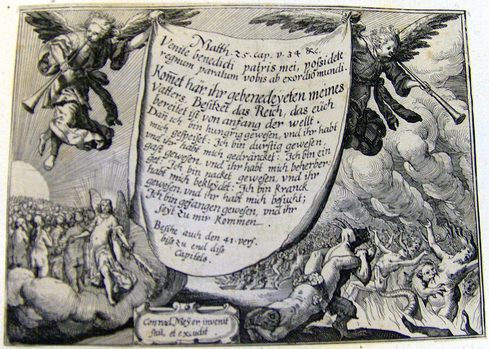 Matth. 25. cap. v. 34 &c.
Venite benedicti patris mei, possidete
regnum paratum vobis ab exordio mundi.
Komet har ihr gebenedeyeten meines
Vatters, Besitzet das Reich, das euch
bereitet ist von anfang der welt.
Dañ ich bin hungrig gewesen, vnd ihr habt
mich gespeiset: Ich bin durstig gewesen,
vnd ihr habt mich gedräncket: Ich bin ein
gast gewesen, vnd ihr habt mich beherber-
get: Ich bin nacket gewesen, vnd ihr
habt mich bekleidet: Ich bin kranck
gewesen, vnd ihr habt mich besucht:
Ich bin gefangen gewesen, vnd ihr
seyt zu mir kommen.
Besihe auch den 41. vers.
biß zu end diß
Capitels.
Conrad Meyer invenit
fecit et excudit